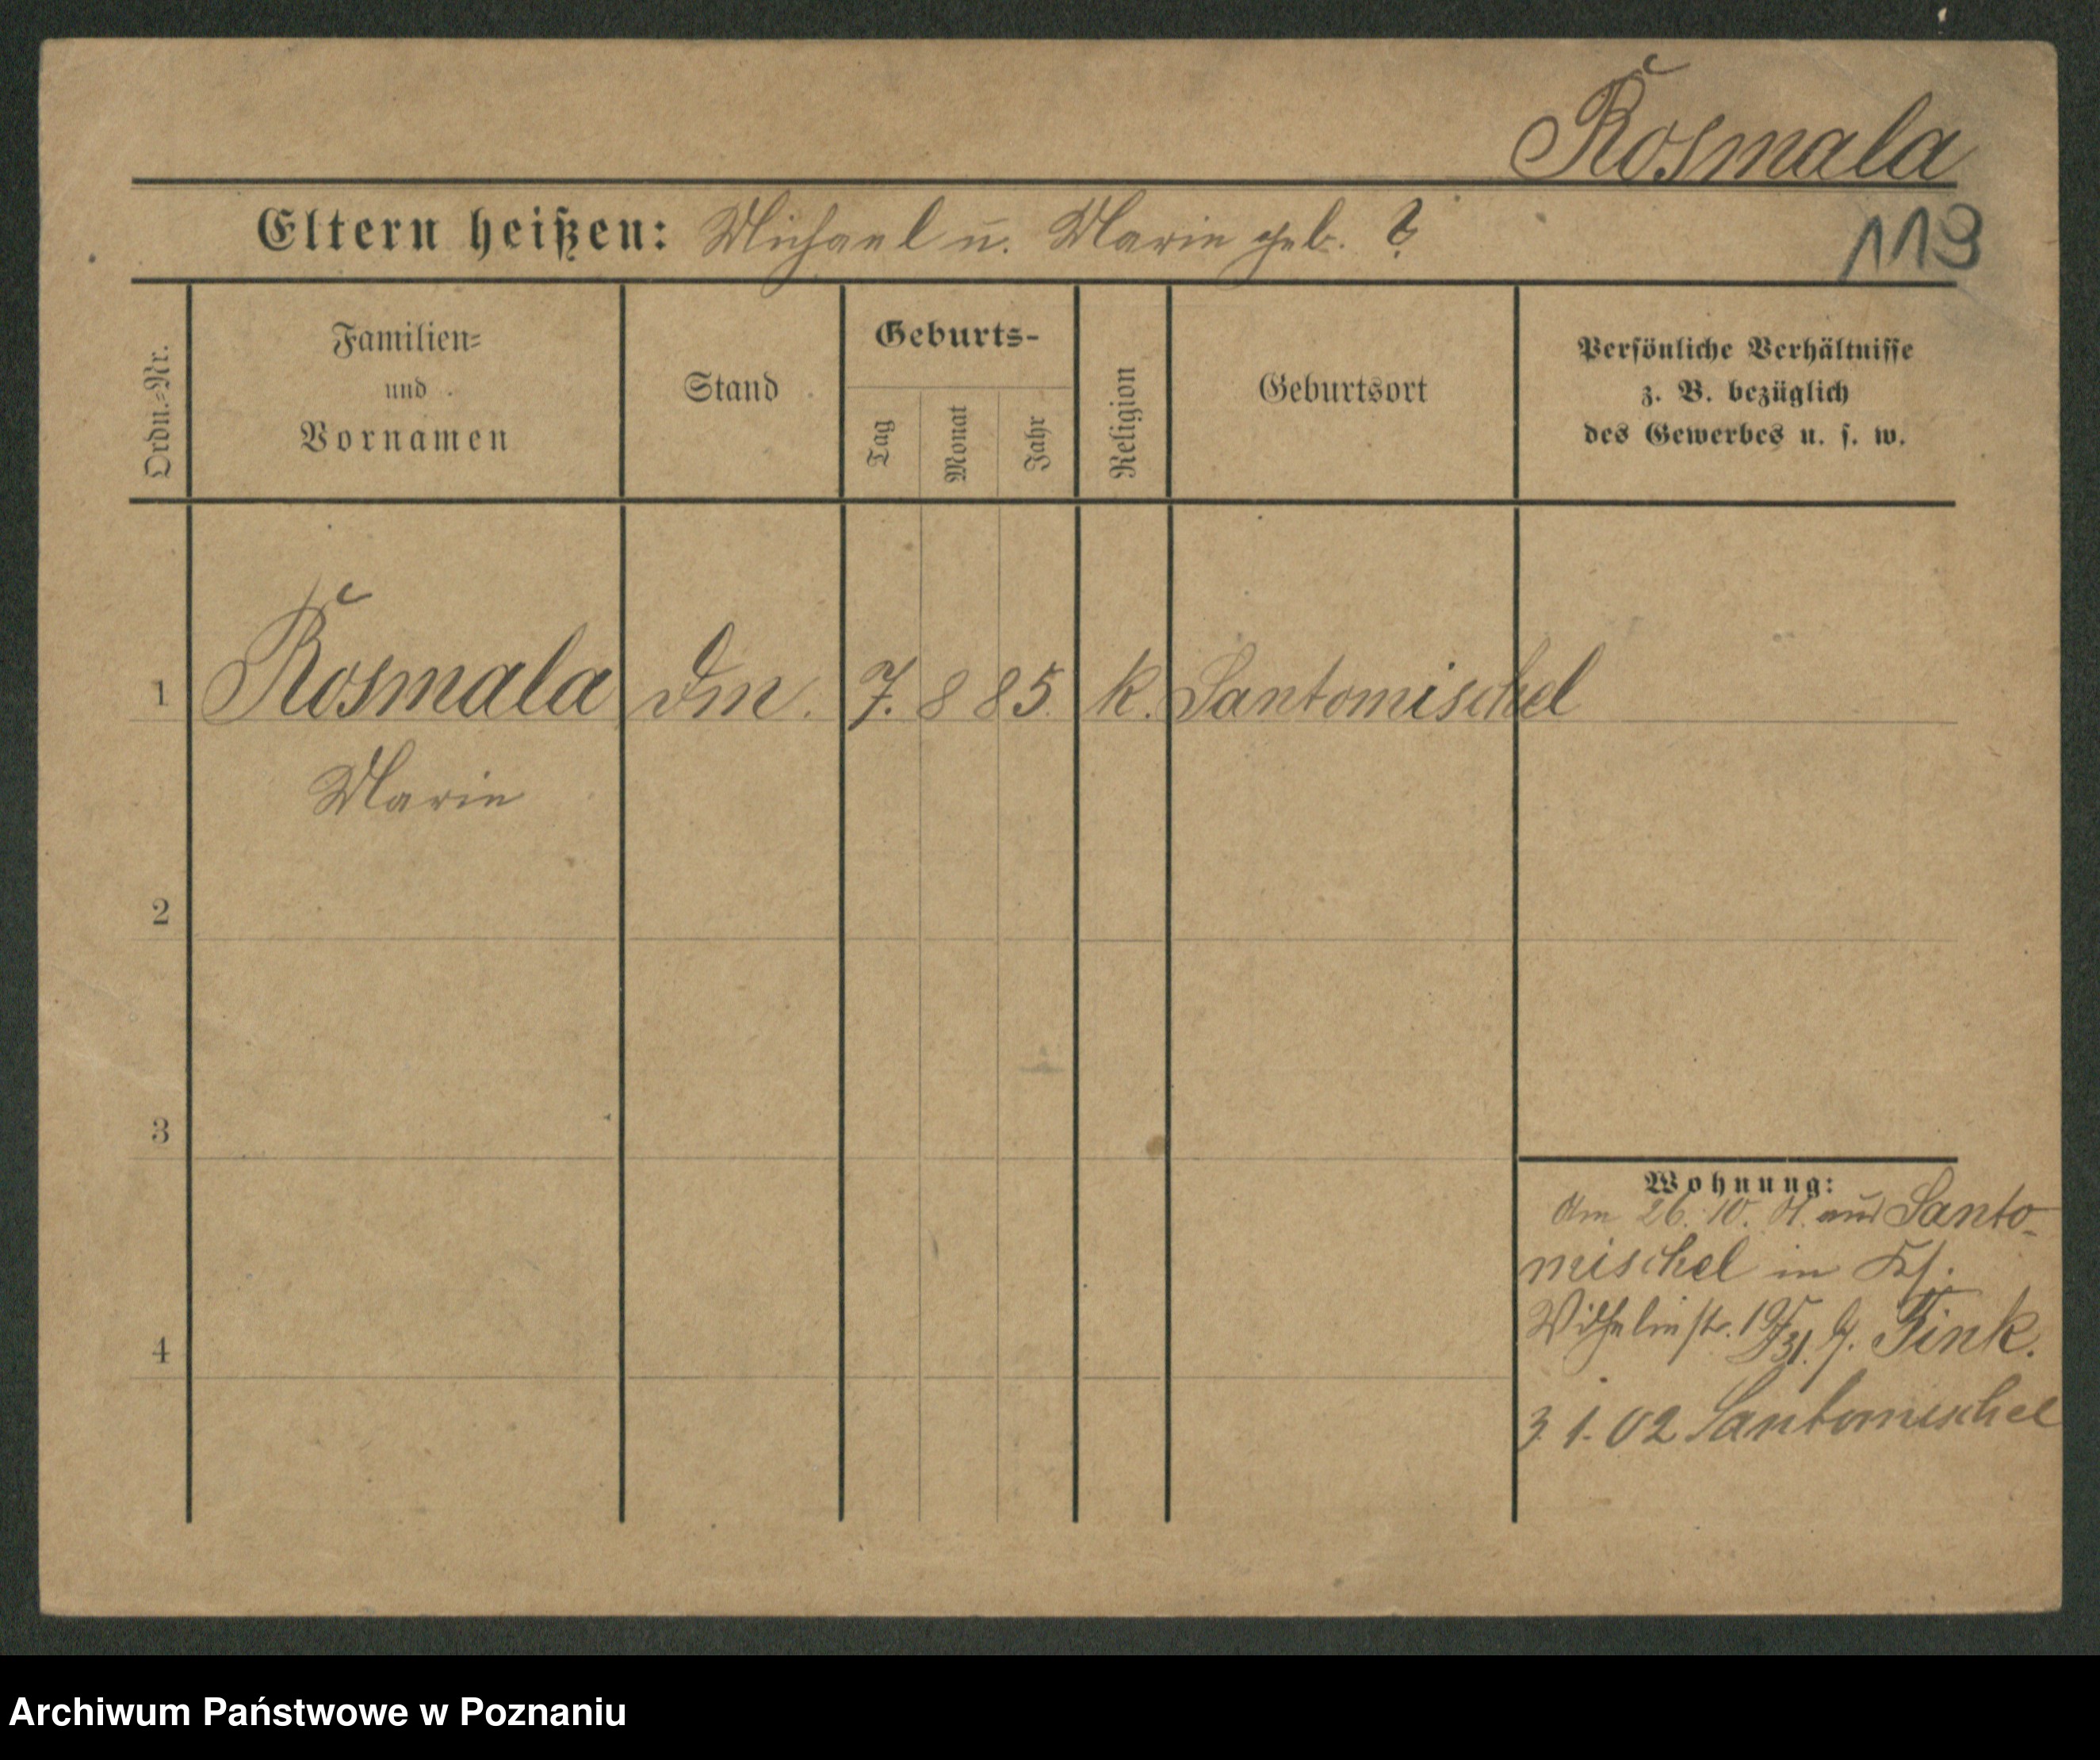 Rosmala
Eltern heißen: Michael u. Marie geb. ?
119
Ordn.=Nr.
Familien=
und
Vornamen
Stand
Geburts-
Tag
Monat
Jahr
Religion
Geburtsort
Persönliche Verhältnisse
z. B. bezüglich
des Gewerbes u. s. w.
1 Rosmala Dm. 7. 8 85 k. Santomischel
Marie
2
3
4
Wohnung:
Am 26. 10. 01. aus Santo-
mischel in
Wilhelmstr. Fink.
3 1. 02 Santomischel
Archiwum Państwowe w Poznaniu